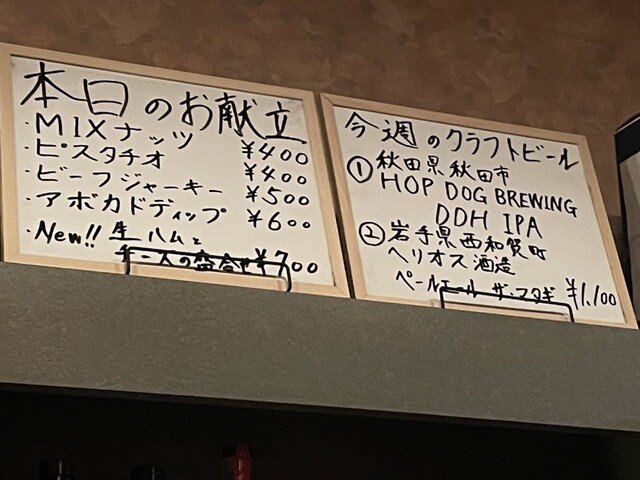 本日のお献立
・MIXナッツ ¥400
・ピスタチオ ¥400
・ビーフジャーキー ¥500
・アボカドディップ ¥600
・New!! 生ハムと
チーズの盛合せ ¥700
今週のクラフトビール
① 秋田県秋田市
HOP DOG BREWING
DDH IPA
② 岩手県西和賀町
ヘリオス酒造
ペールエール ザ・マタギ ¥1,100